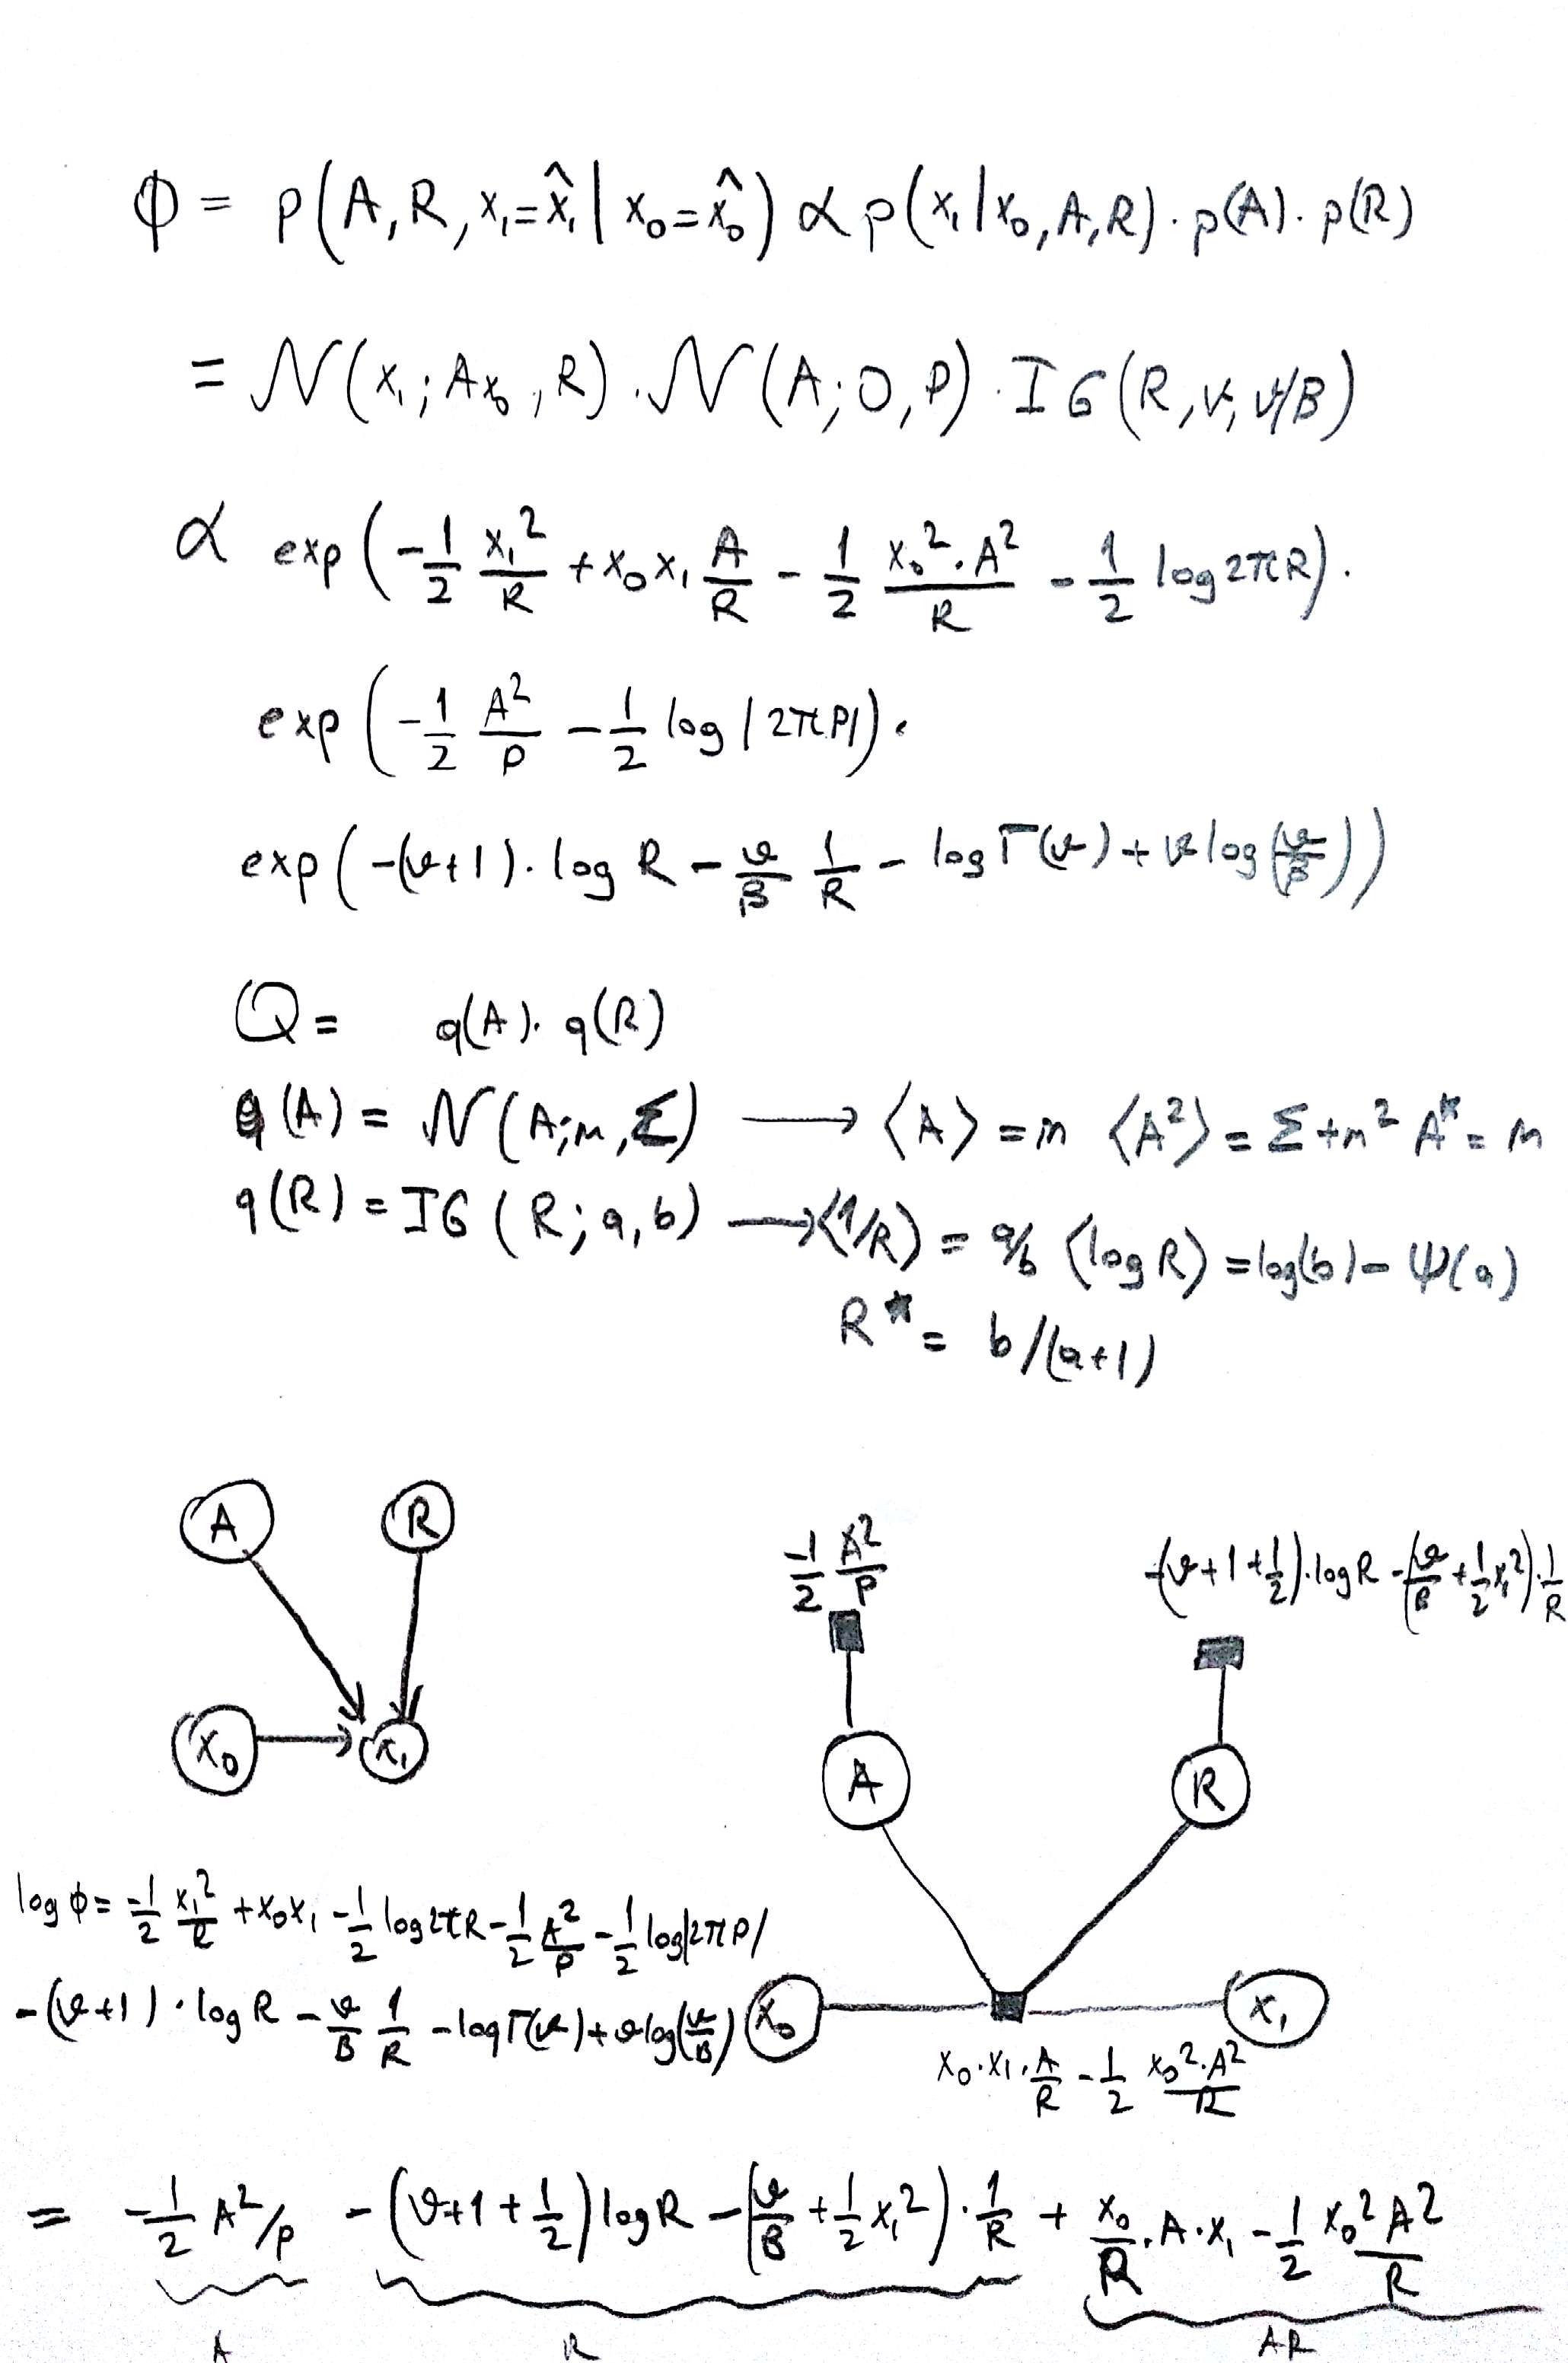 ϕ = p(A, R, x₁=x̂₁ | x₀=x̂₀) ∝ p(x₁|x₀, A, R) · p(A) · p(R)
= 𝒩(x₁; Ax₀, R) · 𝒩(A; 0, P) · IG(R, ν, ν/B)
∝ exp(-1/2 x₁²/R + x₀x₁ A/R - 1/2 x₀²·A²/R - 1/2 log 2πR) ·
exp(-1/2 A²/P - 1/2 log |2πP|) ·
exp(-(ν+1)·log R - ν/B 1/R - log Γ(ν) + ν log(ν/B))
Q = q(A) · q(R)
q(A) = 𝒩(A; m, Σ) → ⟨A⟩ = m ⟨A²⟩ = Σ + m² A* = m
q(R) = IG(R; a, b) → ⟨1/R⟩ = a/b ⟨log R⟩ = log(b) - Ψ(a)
R* = b/(a+1)
A R
-1/2 A²/P
-(ν+1+1/2)·log R - (ν/B + 1/2 x₁²)·1/R
x₀ x₁
A R
log ϕ = -1/2 x₁²/R + x₀x₁ - 1/2 log 2πR - 1/2 A²/P - 1/2 log|2πP|
-(ν+1)·log R - ν/B 1/R - log Γ(ν) + ν log(ν/B)
x₀ x₁
x₀·x₁·A/R - 1/2 x₀²·A²/R
= -1/2 A²/P - (ν+1+1/2) log R - (ν/B + 1/2 x₁²)·1/R + x₀/R·A·x₁ - 1/2 x₀²A²/R
A R AR